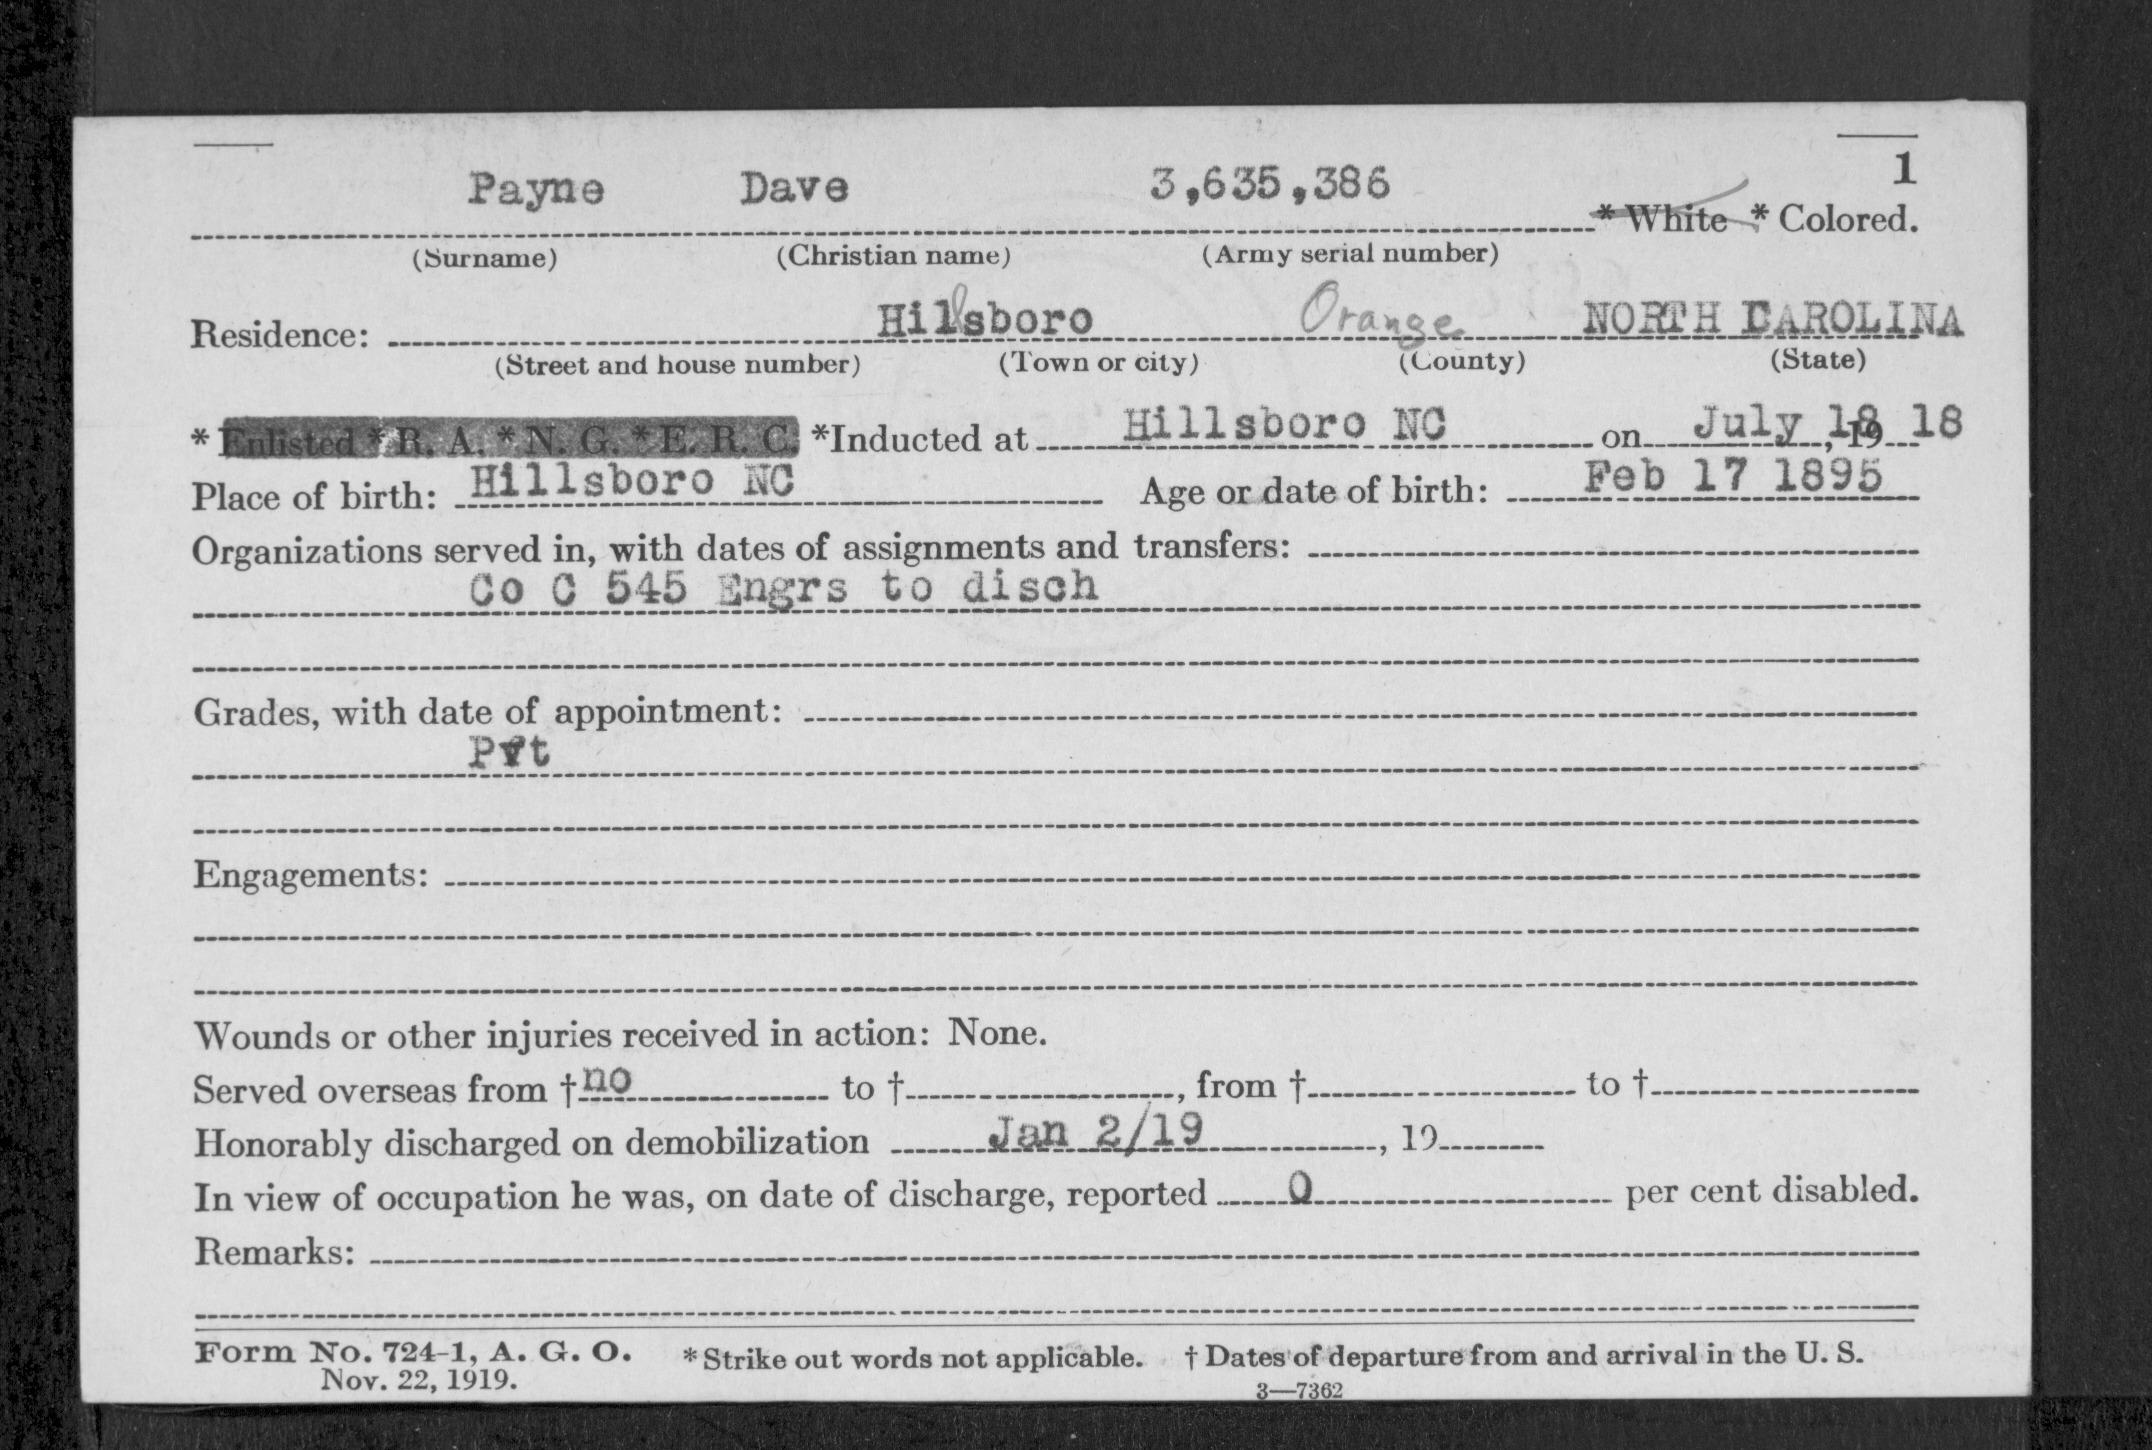 1
Payne Dave 3,635,386 * White * Colored.
(Surname) (Christian name) (Army serial number)
Residence: Hillsboro Orange NORTH CAROLINA
(Street and house number) (Town or city) (County) (State)
* Enlisted * R. A. * N. G. * E. R. C. *Inducted at Hillsboro NC on July 18, 19 18
Place of birth: Hillsboro NC Age or date of birth: Feb 17 1895
Organizations served in, with dates of assignments and transfers:
Co C 545 Engrs to disch
Grades, with date of appointment:
Pvt
Engagements:
Wounds or other injuries received in action: None.
Served overseas from † no to †, from † to †
Honorably discharged on demobilization Jan 2/19, 19
In view of occupation he was, on date of discharge, reported 0 per cent disabled.
Remarks:
Form No. 724-1, A. G. O. * Strike out words not applicable. † Dates of departure from and arrival in the U. S.
Nov. 22, 1919. 3—7362